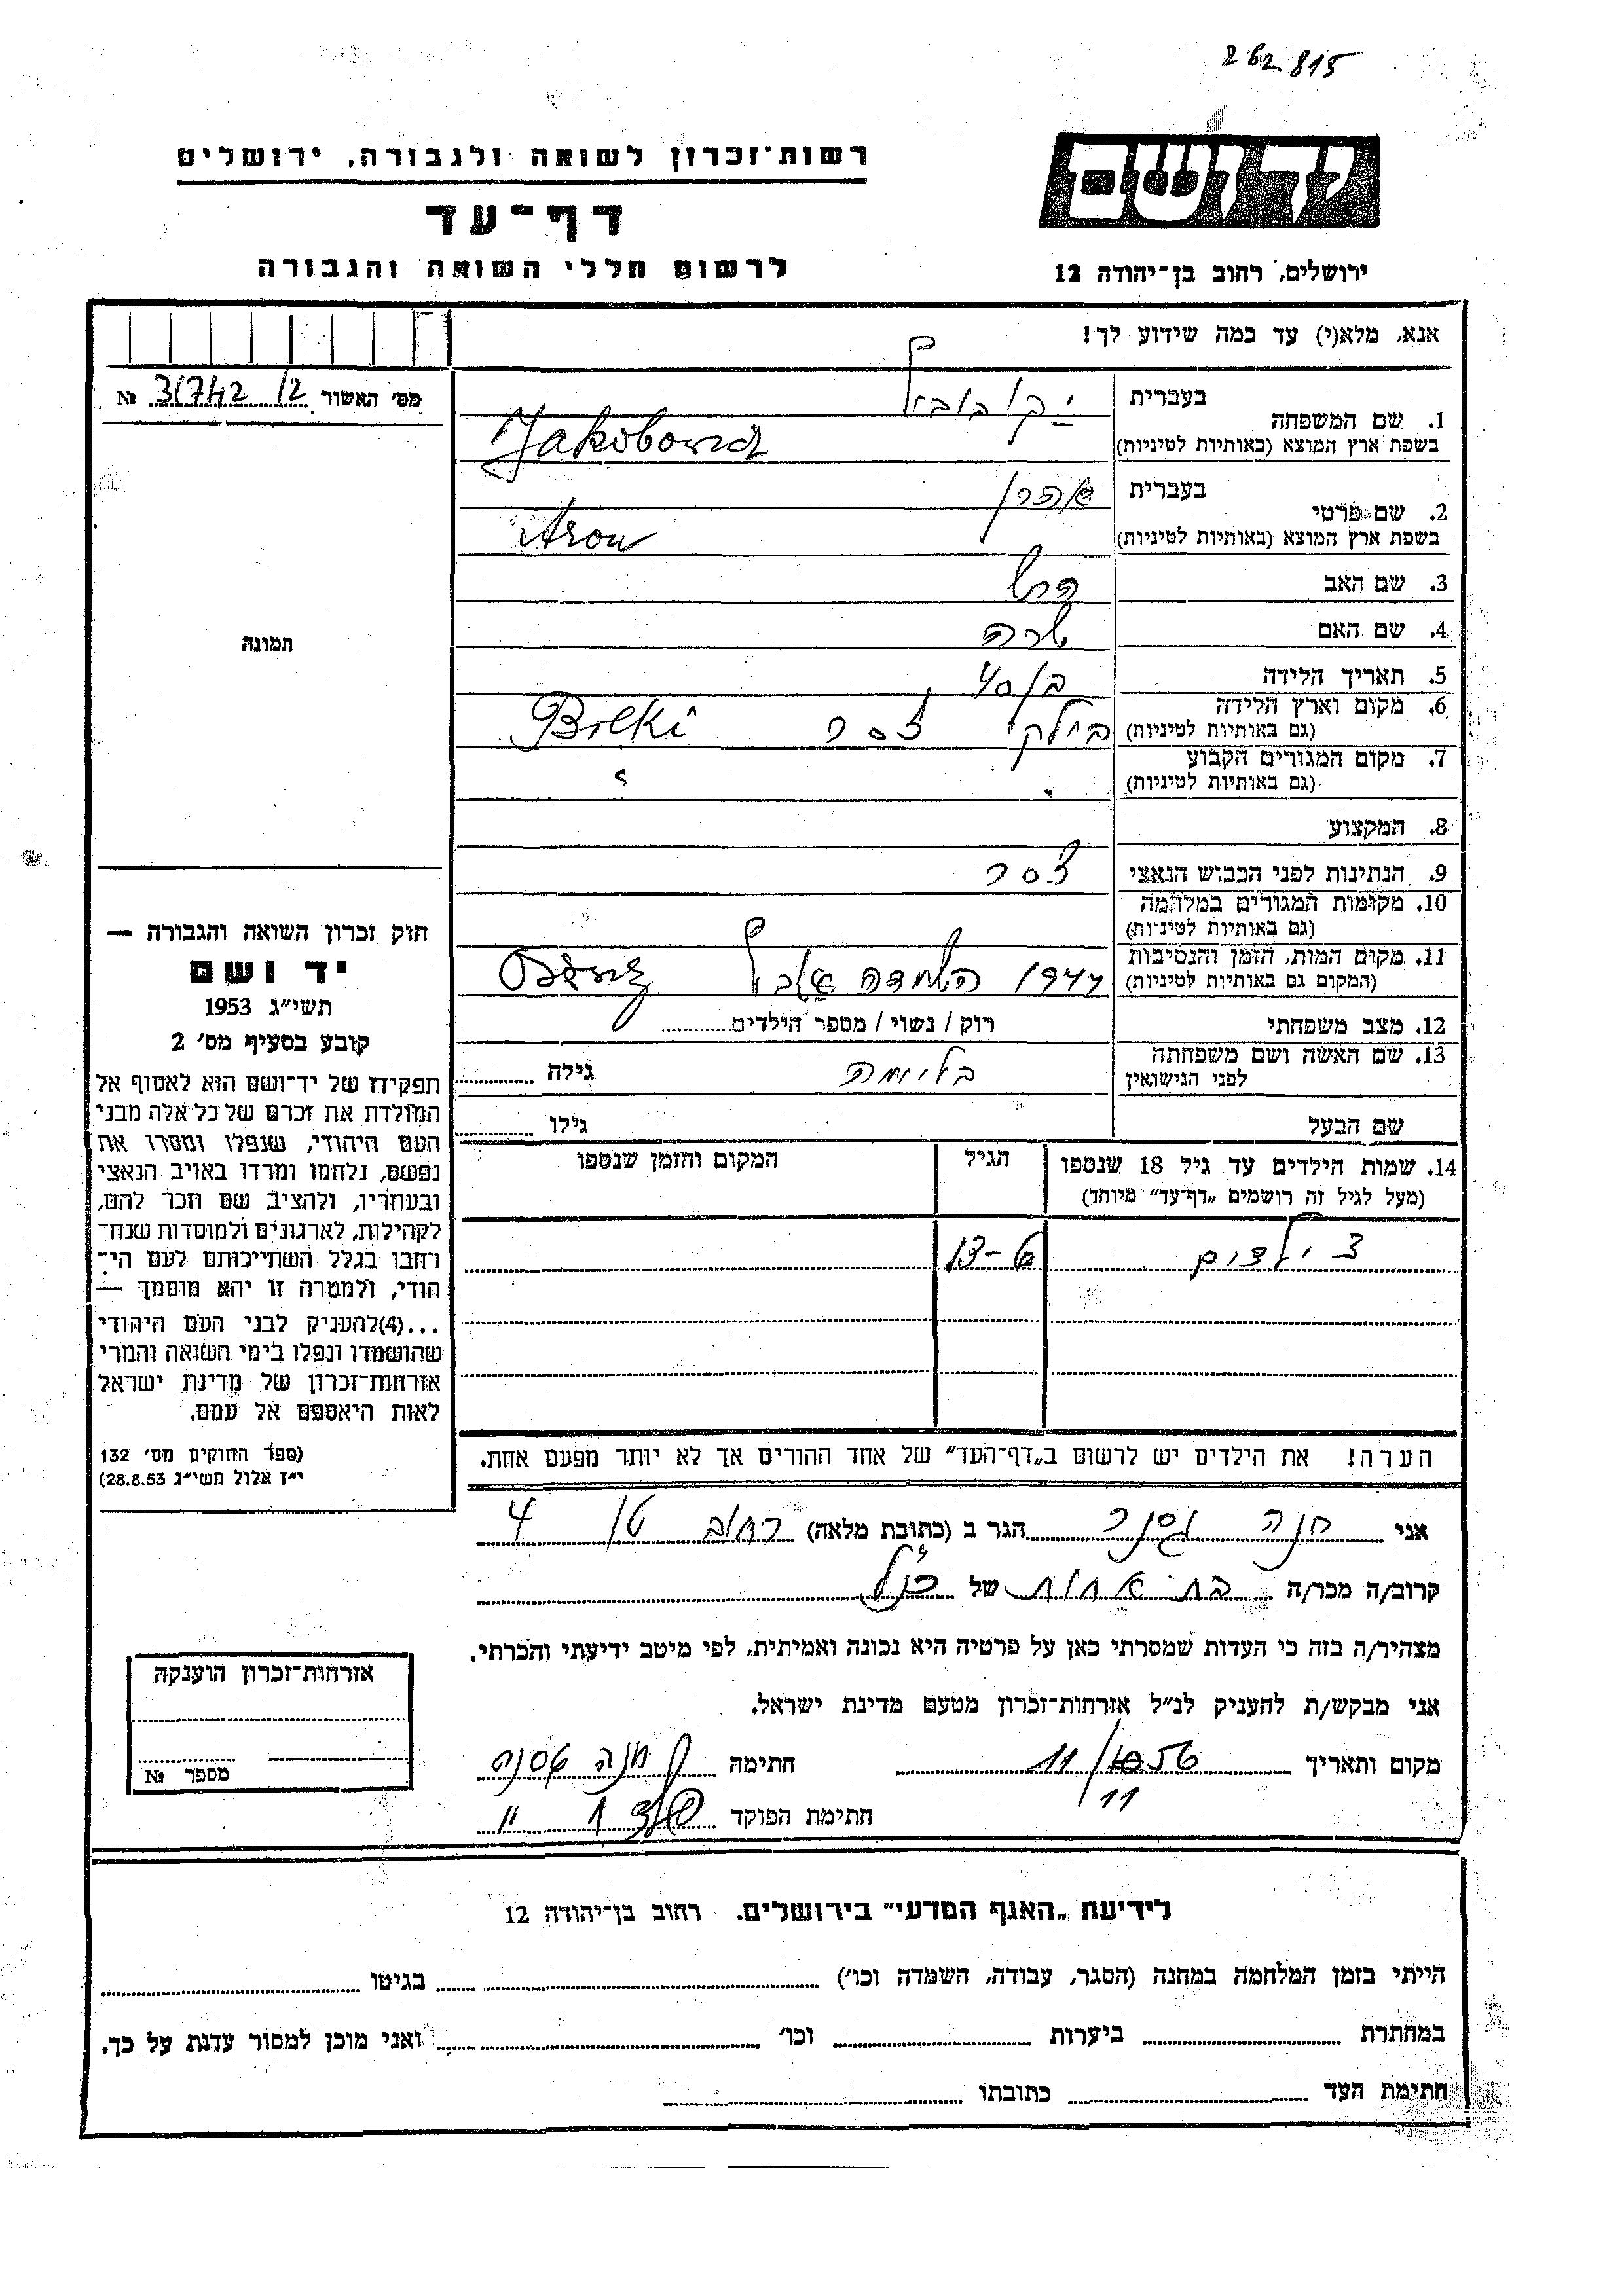 262815
רשות־זכרון לשואה ולגבורה, ירושלים
יד ושם
דף־עד
לרשום חללי השואה והגבורה
ירושלים, רחוב בן־יהודה 12
אנא, מלא(י) עד כמה שידוע לך!
מס' האשור 31742/2 №
1. שם המשפחה בעברית יקובוביץ
בשפת ארץ המוצא (באותיות לטיניות) Jakobovič
2. שם פרטי בעברית אהרן
בשפת ארץ המוצא (באותיות לטיניות) Aron
3. שם האב הרש
4. שם האם שרה
5. תאריך הלידה בן 40
6. מקום וארץ הלידה
(גם באותיות לטיניות) בילקי צ'סר Bilki
7. מקום המגורים הקבוע
(גם באותיות לטיניות) ?
8. המקצוע
9. הנתינות לפני הכבוש הנאצי צ'סר
10. מקומות המגורים במלחמה
(גם באותיות לטיניות)
11. מקום המות, הזמן והנסיבות
(המקום גם באותיות לטיניות) 1944 השמדה
12. מצב משפחתי רוק / נשוי / מספר הילדים
13. שם האשה ושם משפחתה
לפני הנישואין בלומה גילה
שם הבעל גילו
14. שמות הילדים עד גיל 18 שנספו
(מעל לגיל זה רושמים „דף־עד" מיוחד)
הגיל
המקום והזמן שנספו
3 ילדים 6-13
הערה! את הילדים יש לרשום ב„דף־העד" של אחד ההורים אך לא יותר מפעם אחת.
תמונה
חוק זכרון השואה והגבורה —
יד ושם
תשי"ג 1953
קובע בסעיף מס' 2
תפקידו של יד־ושם הוא לאסוף אל
המולדת את זכרם של כל אלה מבני
העם היהודי, שנפלו ומסרו את
נפשם, נלחמו ומרדו באויב הנאצי
ובעוזריו, ולהציב שם וזכר להם,
לקהילות, לארגונים ולמוסדות שנח־
רבו בגלל השתייכותם לעם הי־
הודי, ולמטרה זו יהא מוסמך —
...(4)להעניק לבני העם היהודי
שהושמדו ונפלו בימי השואה והמרי
אזרחות־זכרון של מדינת ישראל
לאות היאספם אל עמם.
(ספר החוקים מס' 132
י"ז אלול תשי"ג 28.8.53)
אני חנה הגר ב (כתובת מלאה) רחוב 4
קרוב/ה מכר/ה בת אחות של הנ"ל
מצהיר/ה בזה כי העדות שמסרתי כאן על פרטיה היא נכונה ואמיתית, לפי מיטב ידיעתי והכרתי.
אני מבקש/ת להעניק לנ"ל אזרחות־זכרון מטעם מדינת ישראל.
מקום ותאריך 11/ 56 חתימה חנה
11
חתימת הפוקד
אזרחות־זכרון הוענקה
מספר №
לידיעת „האגף המדעי" בירושלים, רחוב בן־יהודה 12
הייתי בזמן המלחמה במחנה (הסגר, עבודה, השמדה וכו') בגיטו
במחתרת ביערות וכו' ואני מוכן למסור עדות על כך.
חתימת העד כתובתו